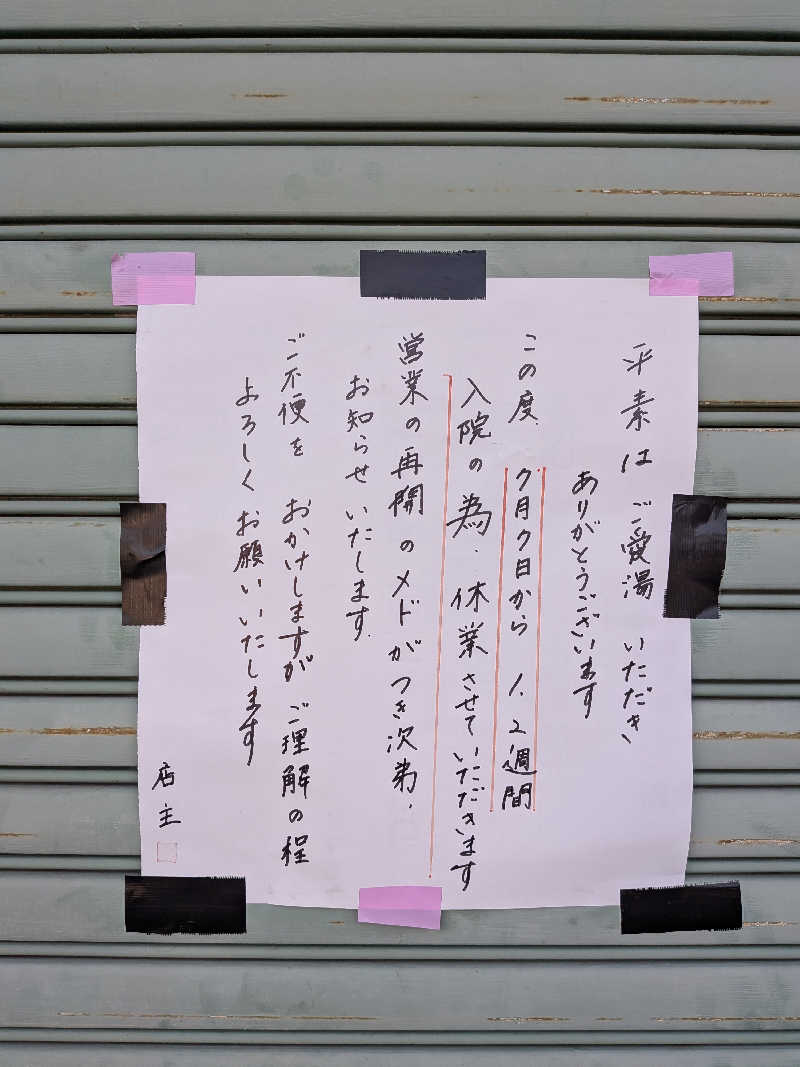 平素は ご愛湯 いただき
ありがとうございます
この度、7月7日から 1、2週間
入院の為、休業させていただきます
営業の再開のメドがつき次第、
お知らせいたします。
ご不便を おかけしますが ご理解の程
よろしくお願いいたします
店主